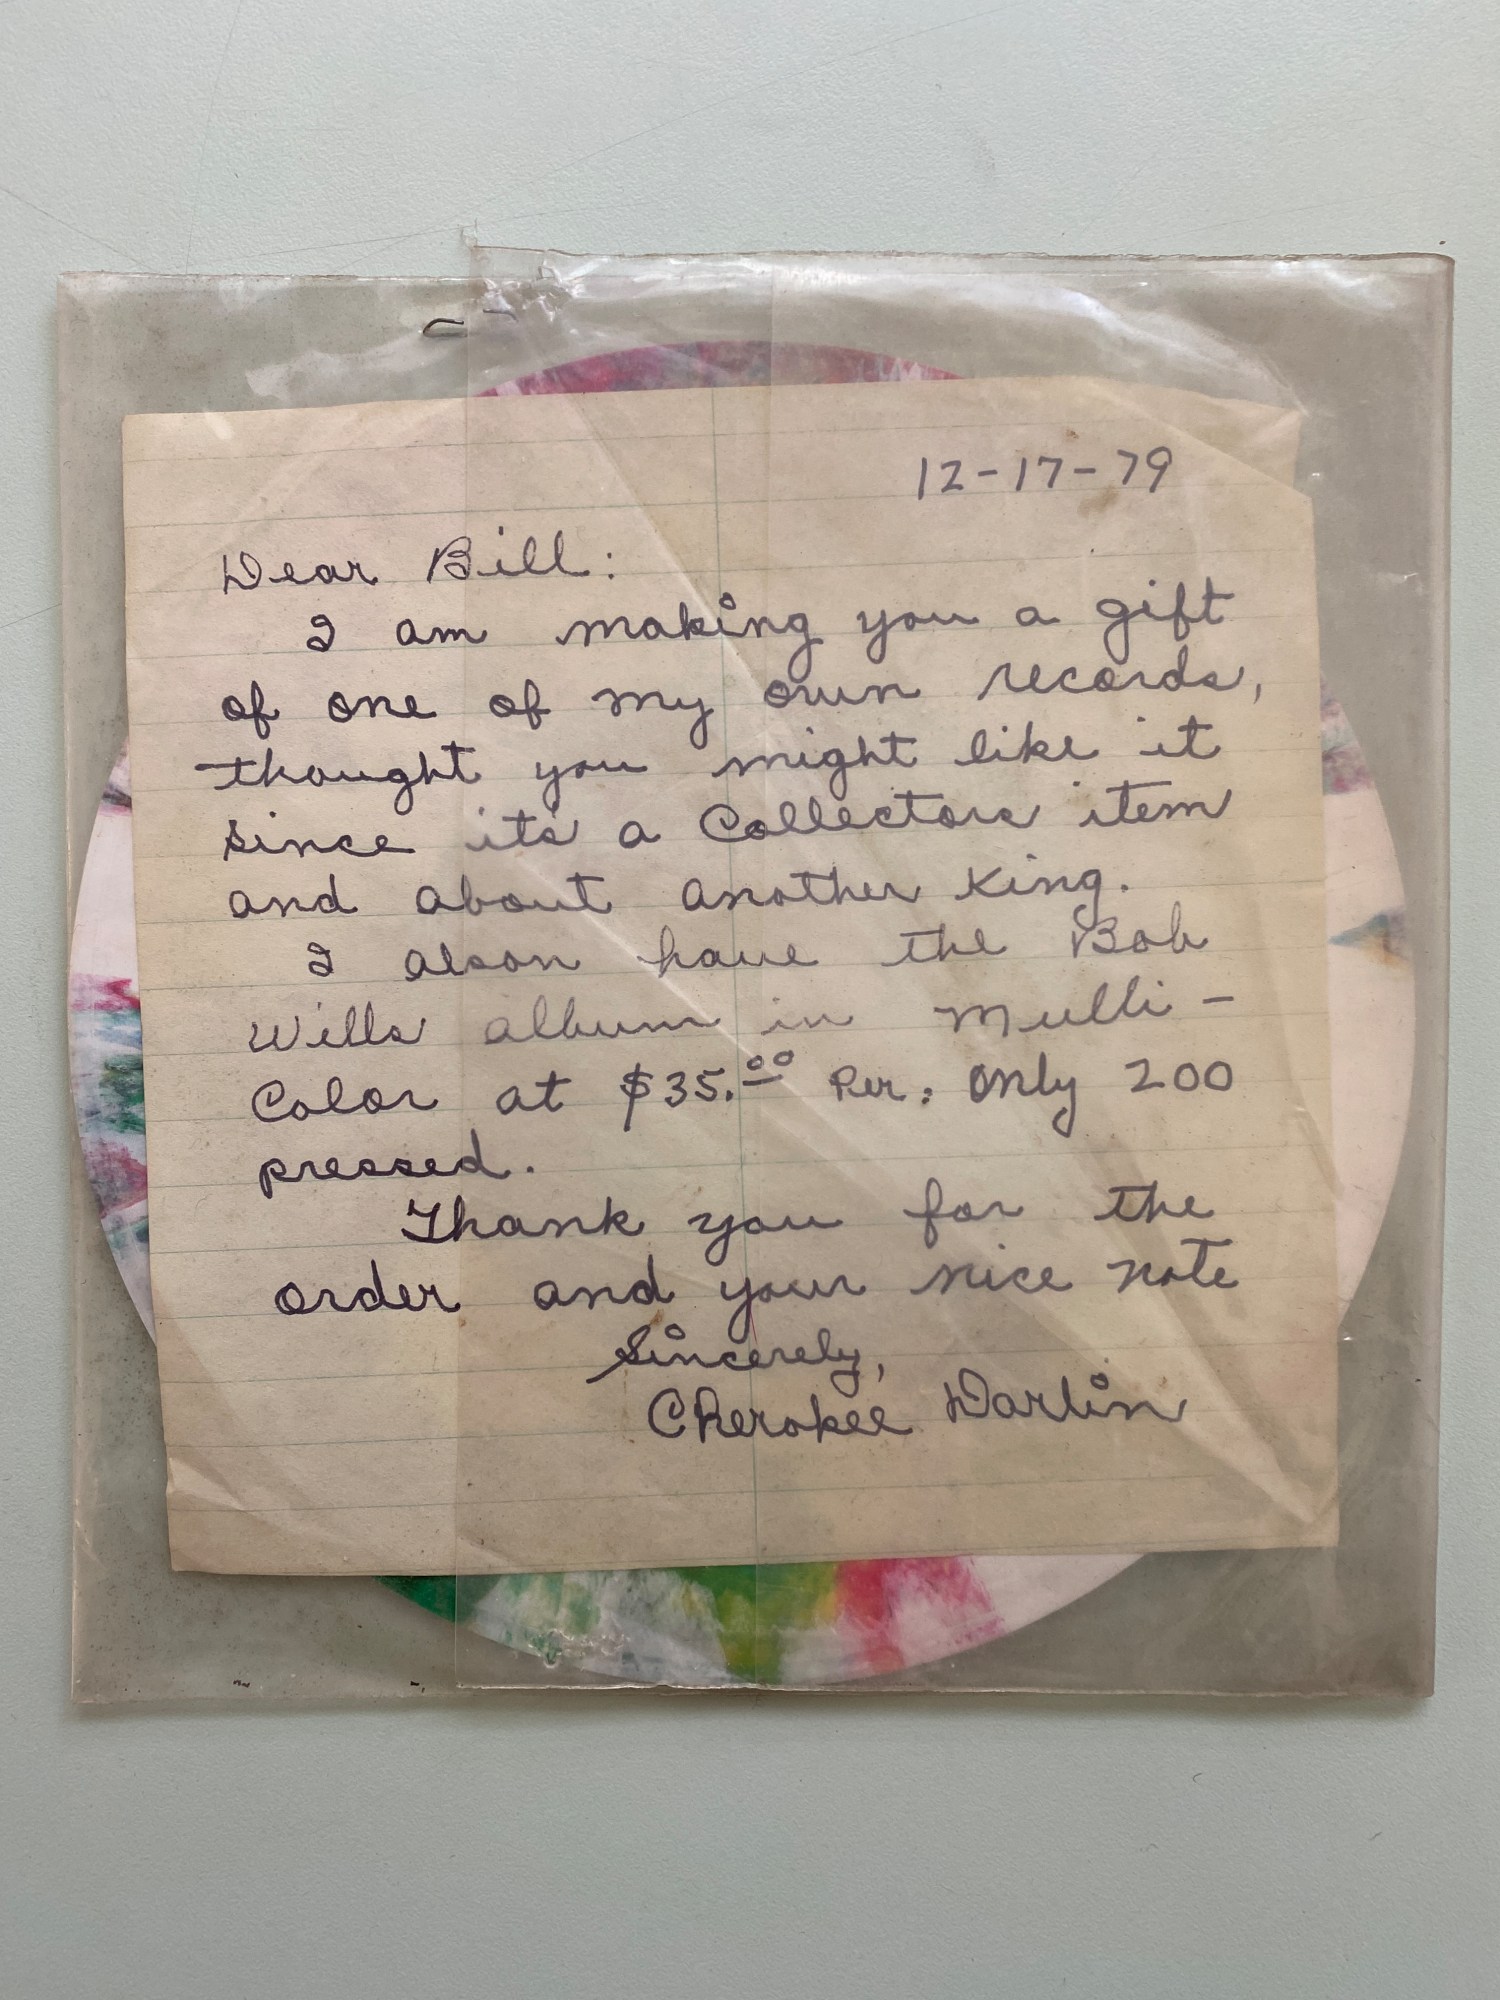 12-17-79
Dear Bill:
I am making you a gift
of one of my own records,
thought you might like it
since its a Collectors item
and about another King.
I alson have the Bob
Wills album in Multi-
Color at $35.00 Per: only 200
pressed.
Thank you for the
order and your nice note
Sincerely,
Cherokee Darlin